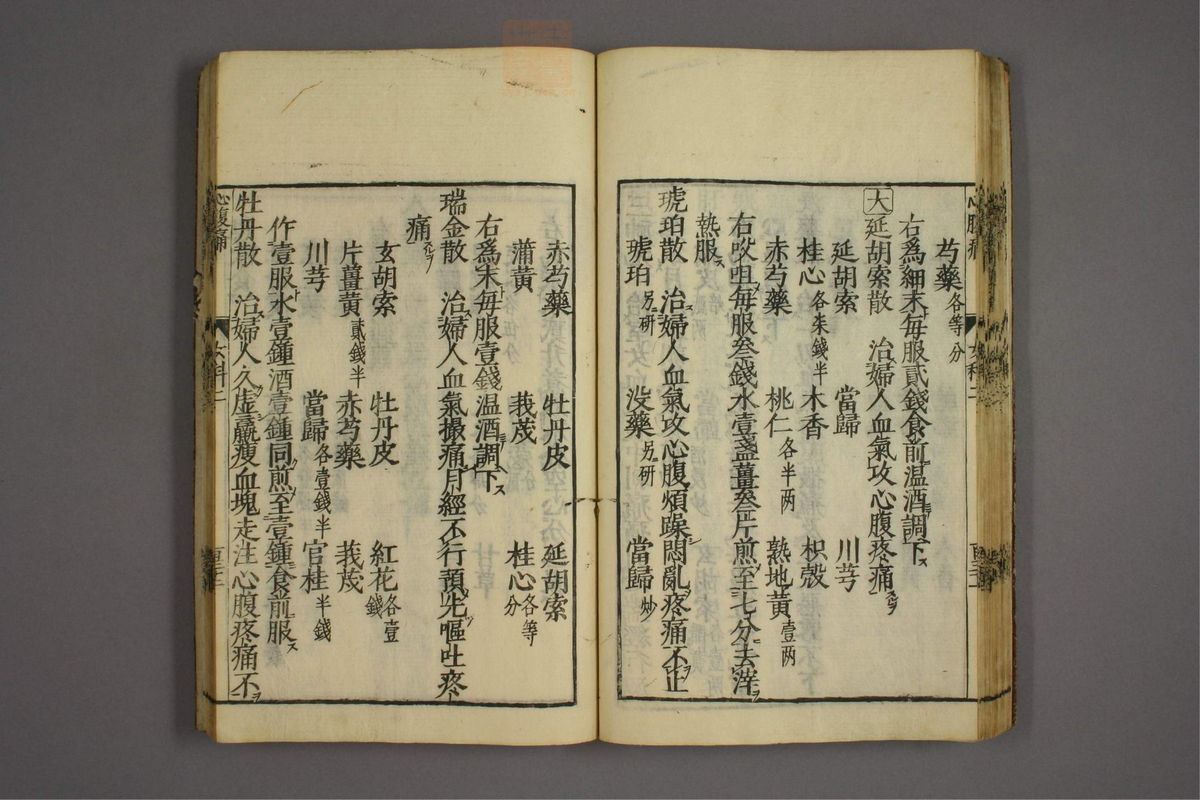 芍藥各等分
右爲細末每服貳錢食前温酒調下ス
大 延胡索散 治婦人血氣攻心腹疼痛スルヲ
延胡索 當歸 川芎
桂心各柒錢半 木香 枳殼
赤芍藥 桃仁各半两 熟地黄壹两
右㕮咀每服叄錢水壹盞薑叄片煎至七分去滓ヲ
熱服ス
琥珀散 治婦人血氣攻心腹煩躁悶亂疼痛不止
琥珀另研 没藥另研 當歸炒
赤芍藥 牡丹皮 延胡索
蒲黄 莪茂 桂心各等分
右爲末每服壹錢温酒調下ス
瑞金散 治婦人血氣撮痛月經不行預先嘔吐疼
痛スルヲ
玄胡索 牡丹皮 紅花各壹錢
片薑黄貳錢半 赤芍藥 莪茂
川芎 當歸各壹錢半 官桂半錢
作壹服水壹鍾酒壹鍾同煎至壹鍾食前服ス
牡丹散 治婦人久虛羸瘦血塊走注心腹疼痛不
心腹痛 女科二